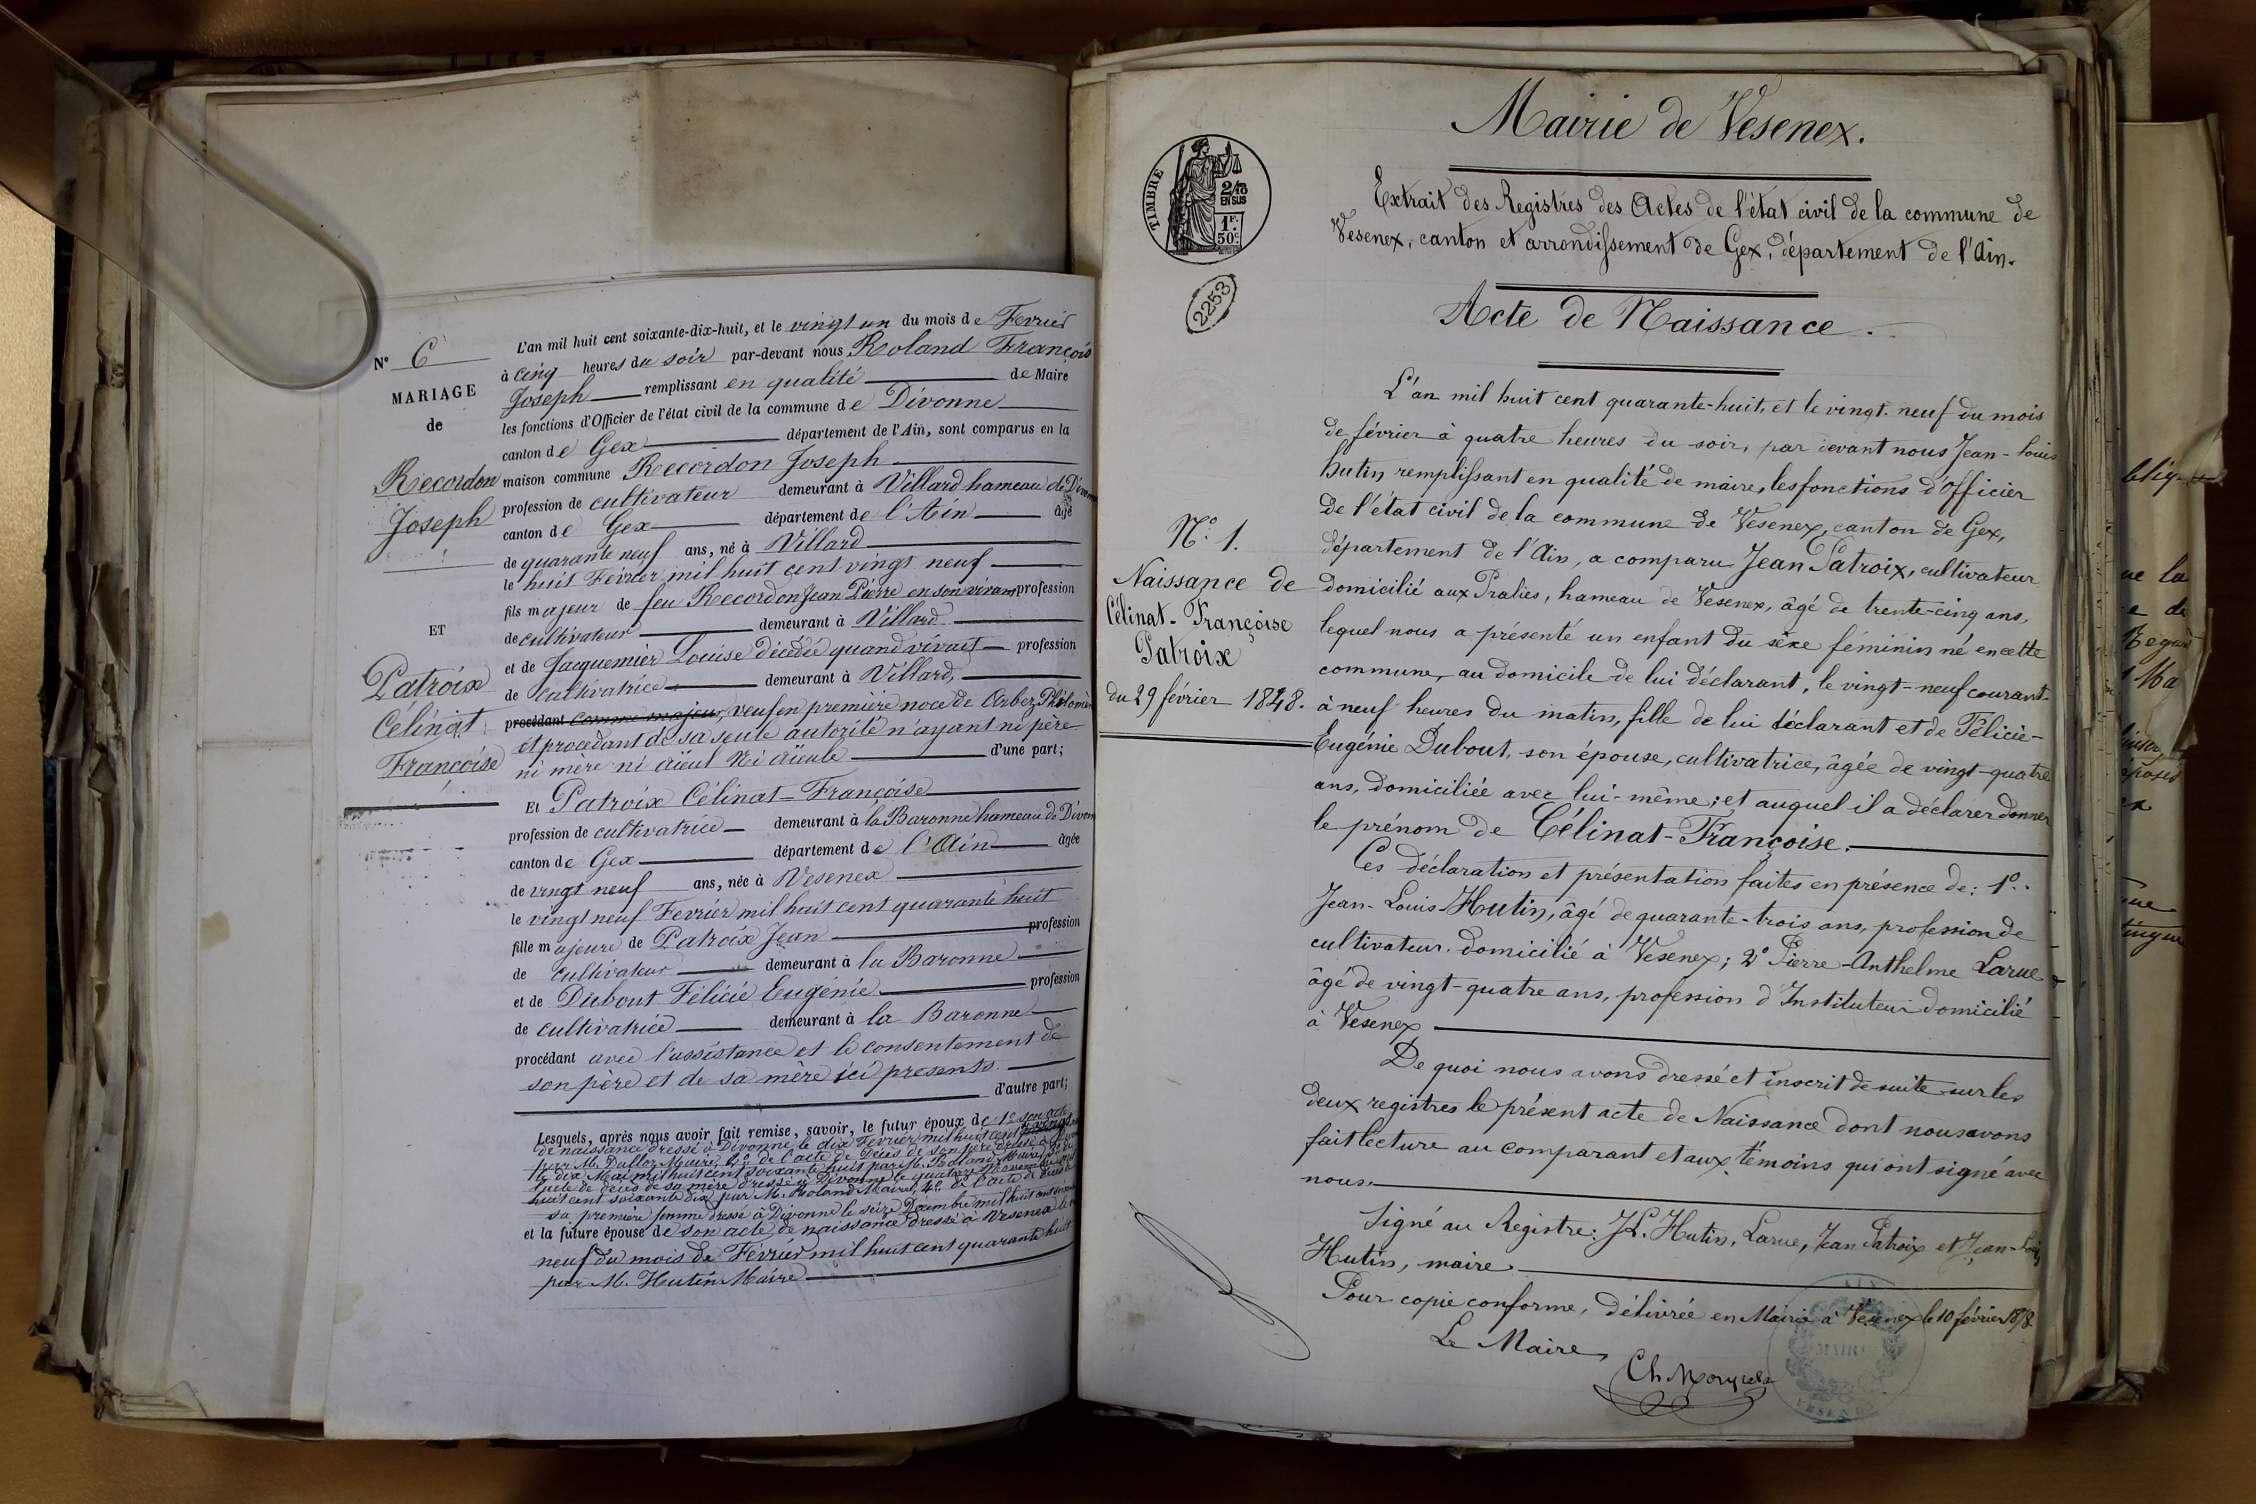 N° 6
MARIAGE
de
Recordon
Joseph
ET
Patroix
Célinat
Françoise
L'an mil huit cent soixante-dix-huit, et le vingt un du mois de Fevrier
à cinq heures du soir par-devant nous Roland François
Joseph remplissant en qualité de Maire
les fonctions d'Officier de l'état civil de la commune de Divonne
canton de Gex département de l'Ain, sont comparus en la
maison commune Recordon Joseph
profession de cultivateur demeurant à Villard hameau de Divonne
canton de Gex département de l'Ain âgé
de quarante neuf ans, né à Villard
le huit Fevrier mil huit cent vingt neuf
fils majeur de feu Recordon Jean Pierre en son vivant profession
de cultivateur demeurant à Villard
et de Jacquemier Louise décédée quand vivait profession
de cultivatrice demeurant à Villard,
procédant comme majeur, veuf en première noce de Arbez Philomène
et procedant de sa seule autorité n'ayant ni père
ni mère ni aieul Ni aïeule d'une part;
Et Patroix Célinat-Françoise
profession de cultivatrice demeurant à la Baronne hameau de Divonne
canton de Gex département de l'Ain âgée
de vingt neuf ans, née à Vesenex
le vingt neuf Fevrier mil huit cent quarante huit
fille majeure de Patroix Jean profession
de cultivateur demeurant à la Baronne
et de Dubout Félicie Eugenie profession
de cultivatrice demeurant à la Baronne
procédant avec l'assistance et le consentement de
son père et de sa mère ici presents.
d'autre part;
Lesquels, après nous avoir fait remise, savoir, le futur époux de 1° son acte
de naissance dressé à Divonne le dix Fevrier mil huit cent vingt
par M. Dalloz Maire, 2° de l'acte de Décès de son père dressé à
le dix Mai mil huit cent soixante huit par M. Roland Maire, 3°
l'acte de décès de sa mère dressé à Divonne le quatorze Novembre mil
huit cent soixante dix par M. Roland Maire, 4° de l'acte de décès de
sa première femme dressé à Divonne le seize Décembre mil huit cent soixante
et la future épouse de son acte de naissance dressé à Vesenex le
neuf du mois de Février mil huit cent quarante huit
par M. Hutin Maire
TIMBRE
2/10
EN SUS
1F.
50c
2253
Mairie de Vesenex.
Extrait des Registres des Actes de l'état civil de la commune de
Vesenex, canton et arrondissement de Gex, département de l'Ain.
Acte de Naissance.
N° 1.
Naissance de
Célinat-Françoise
Patroix
du 29 février 1848.
L'an mil huit cent quarante-huit, et le vingt-neuf du mois
de février à quatre heures du soir, par devant nous Jean-Louis
Hutin remplissant en qualité de maire, les fonctions d'Officier
de l'état civil de la commune de Vesenex, canton de Gex,
département de l'Ain, a comparu Jean Patroix, cultivateur
domicilié aux Pralies, hameau de Vesenex, âgé de trente-cinq ans,
lequel nous a présenté un enfant du sexe féminin né en cette
commune, au domicile de lui déclarant, le vingt-neuf courant
à neuf heures du matin, fille de lui déclarant et de Félicie-
Eugénie Dubout, son épouse, cultivatrice, âgée de vingt-quatre
ans, domiciliée avec lui-même; et auquel il a déclarer donner
le prénom de Célinat-Françoise.
Ces déclaration et présentation faites en présence de: 1°.
Jean-Louis Hutin, âgé de quarante-trois ans, profession de
cultivateur. domicilié à Vesenex; 2° Pierre-Anthelme Larue
âgé de vingt-quatre ans, profession d'Instituteur domicilié
à Vesenex
De quoi nous avons dressé et inscrit de suite sur les
deux registres le présent acte de Naissance dont nous avons
fait lecture au comparant et aux témoins qui ont signé avec
nous.
Signé au Registre: J.L. Hutin, Larue, Jean Patroix et Jean-Louis
Hutin, maire
Pour copie conforme, délivrée en Mairie à Vesenex le 10 février 1878.
Le Maire,
AIN
MAIRIE
VESENEX